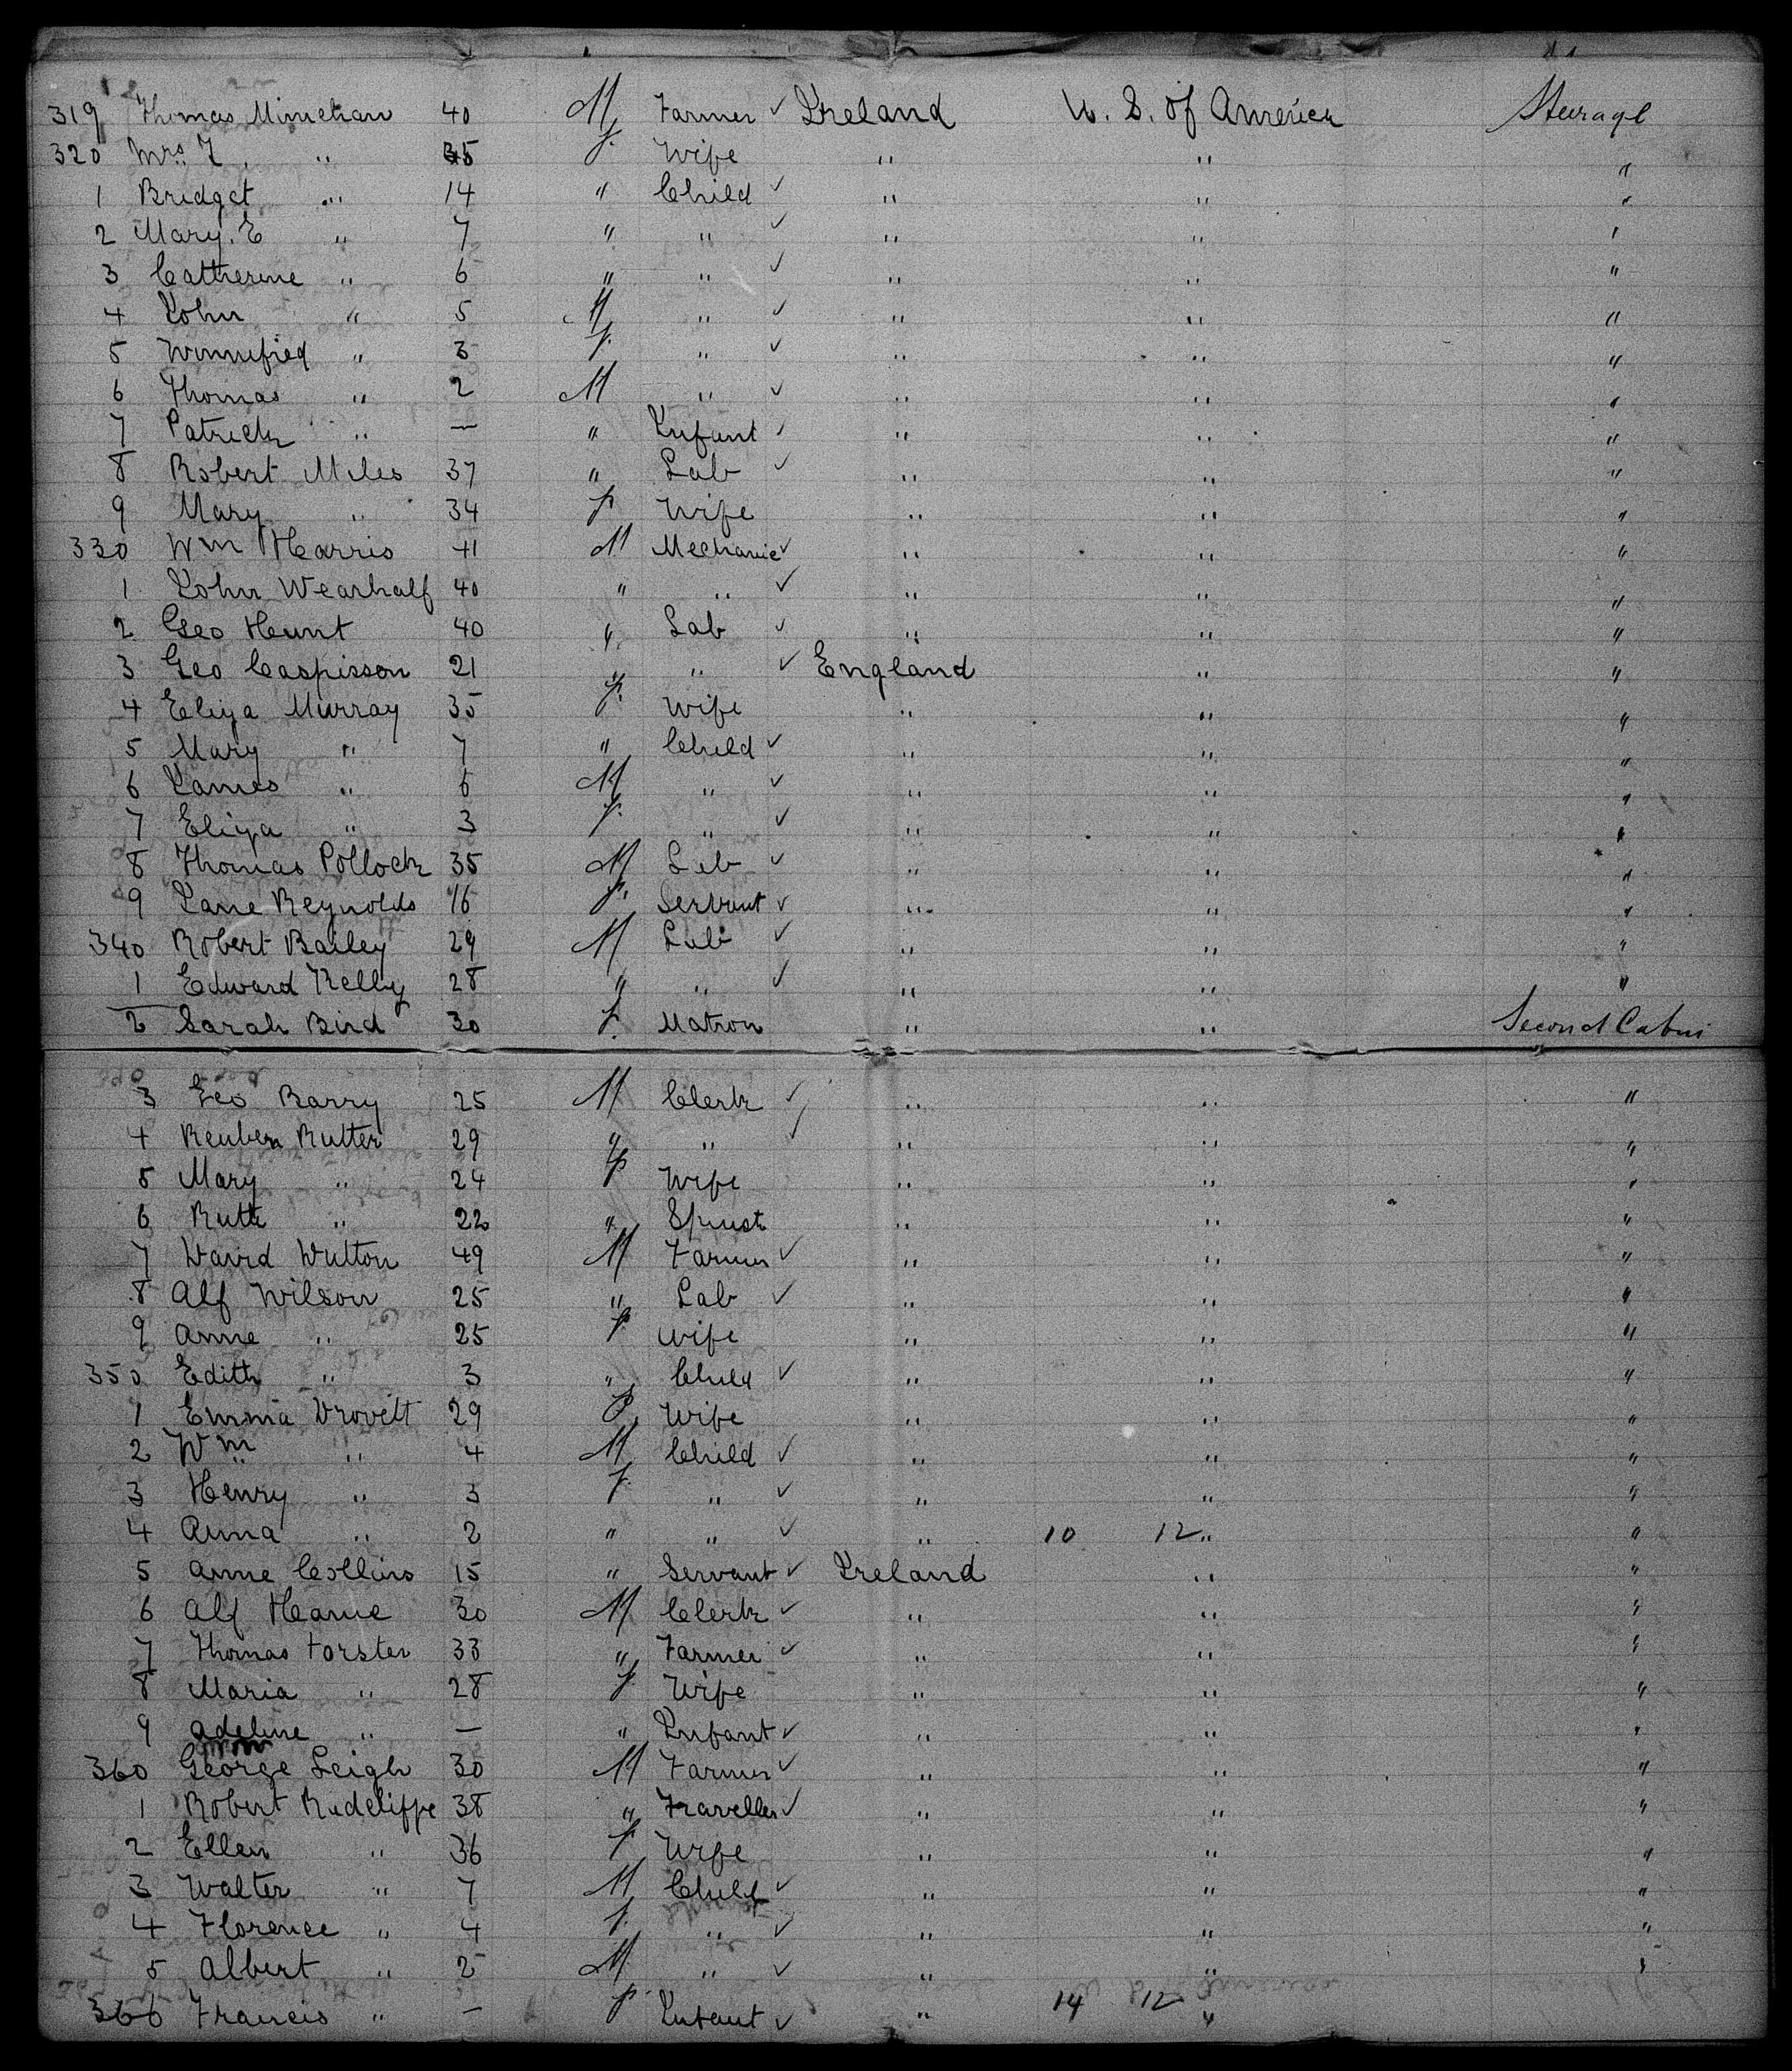 319 Thomas Minnehan 40 M Farmer ✓ Ireland U. S. of America Steerage
320 Mrs T. " 35 f. Wife " " "
1 Bridget " 14 " Child ✓ " " "
2 Mary. E " 7 " " ✓ " " "
3 Catherine " 6 " " ✓ " " "
4 John " 5 M " ✓ " " "
5 Winnefied " 3 f. " ✓ " " "
6 Thomas " 2 M " ✓ " " "
7 Patrick " — " Infant ✓ " " "
8 Robert Miles 37 " Lab ✓ " " "
9 Mary " 34 f Wife " " "
330 Wm Harris 41 M Mechanic ✓ " " "
1 John Wearhalf 40 " " ✓ " " "
2 Geo Hunt 40 " Lab ✓ " " "
3 Geo Caspisson 21 " " ✓ England " "
4 Eliza Murray 35 f. Wife " " "
5 Mary " 7 " Child ✓ " " "
6 James " 6 M " ✓ " " "
7 Eliza " 3 f. " ✓ " " "
8 Thomas Pollock 35 M Lab ✓ " " "
9 Jane Reynolds 16 f. Servant ✓ " " "
340 Robert Bailey 29 M Lab ✓ " " "
1 Edward Kelly 28 " " ✓ " " "
2 Sarah Bird 30 f. Matron " " Second Cabin
3 Geo Barry 25 M Clerk ✓ " " "
4 Reuben Rutter 29 " " " " "
5 Mary " 24 f Wife " " "
6 Ruth " 22 " Spinst " " "
7 David Dutton 49 M Farmer ✓ " " "
8 Alf Wilson 25 " Lab ✓ " " "
9 Anne " 25 f Wife " " "
350 Edith " 3 " Child ✓ " " "
1 Emma Drovett 29 f Wife " " "
2 Wm " 4 M Child ✓ " " "
3 Henry " 3 f. " ✓ " " "
4 Anna " 2 " " ✓ " 10 12 " "
5 Anne Collins 15 " Servant ✓ Ireland " "
6 Alf Hearne 30 M Clerk ✓ " " "
7 Thomas Forster 33 " Farmer ✓ " " "
8 Maria " 28 f Wife " " "
9 Adeline " — " Infant ✓ " " "
360 George Leigh 30 M Farmer ✓ " " "
1 Robert Radcliffe 38 " Traveller ✓ " " "
2 Ellen " 36 f Wife " " "
3 Walter " 7 M Child ✓ " " "
4 Florence " 4 f. " ✓ " " "
5 Albert " 2 M " ✓ " " "
366 Francis " — f. Infant ✓ " 14 12 "